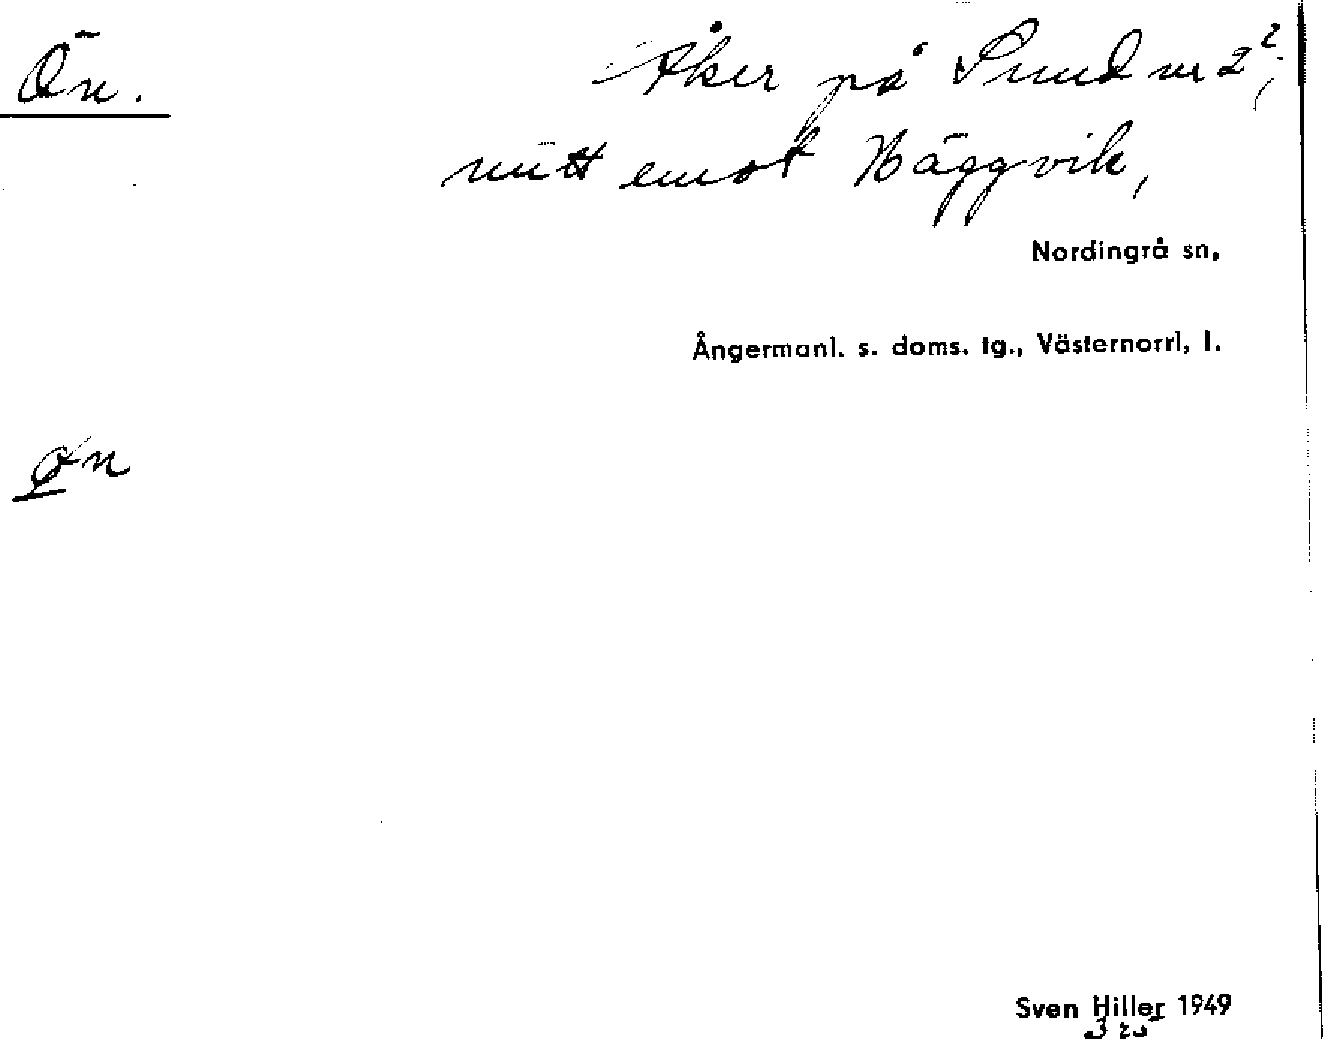 Ön.
Åker på Sund nr 2²;
mitt emot Häggvik,
Nordingrå sn,
Ångermanl. s. doms. tg., Västernorrl, l.
øn
Sven Hiller 1949
325